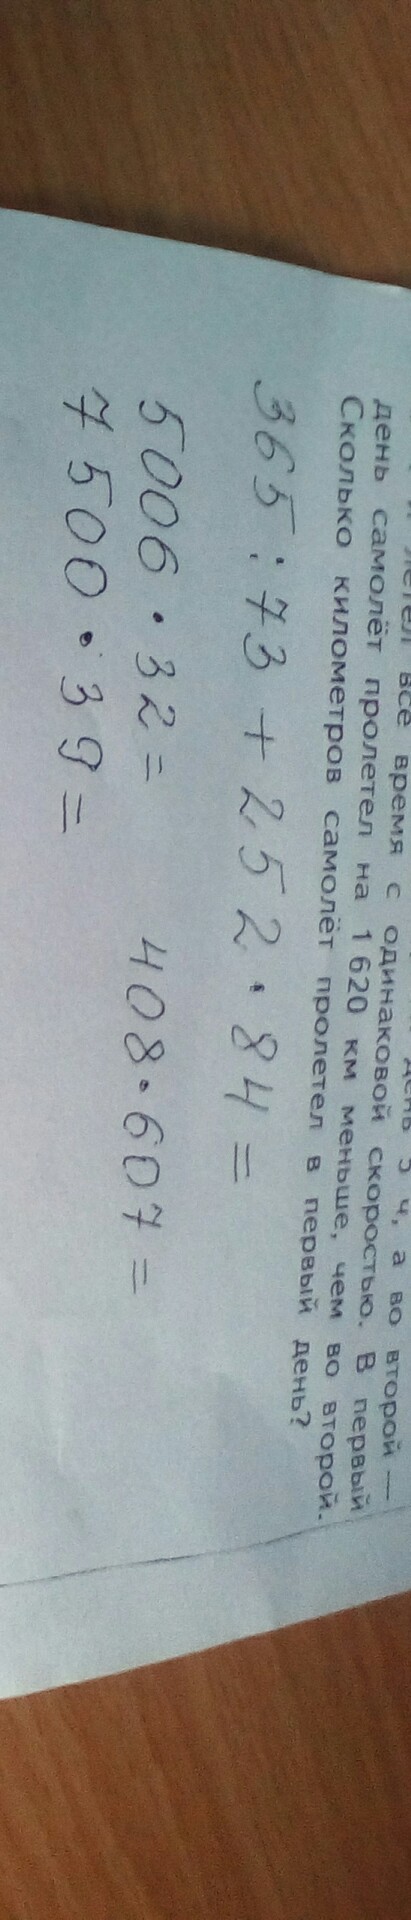 летел всё время с одинаковой скоростью. В первый
день самолёт пролетел на 1 620 км меньше, чем во второй.
Сколько километров самолёт пролетел в первый день?
365 : 73 + 252 · 84 =
5006 · 32 = 408 · 607 =
7500 · 39 =